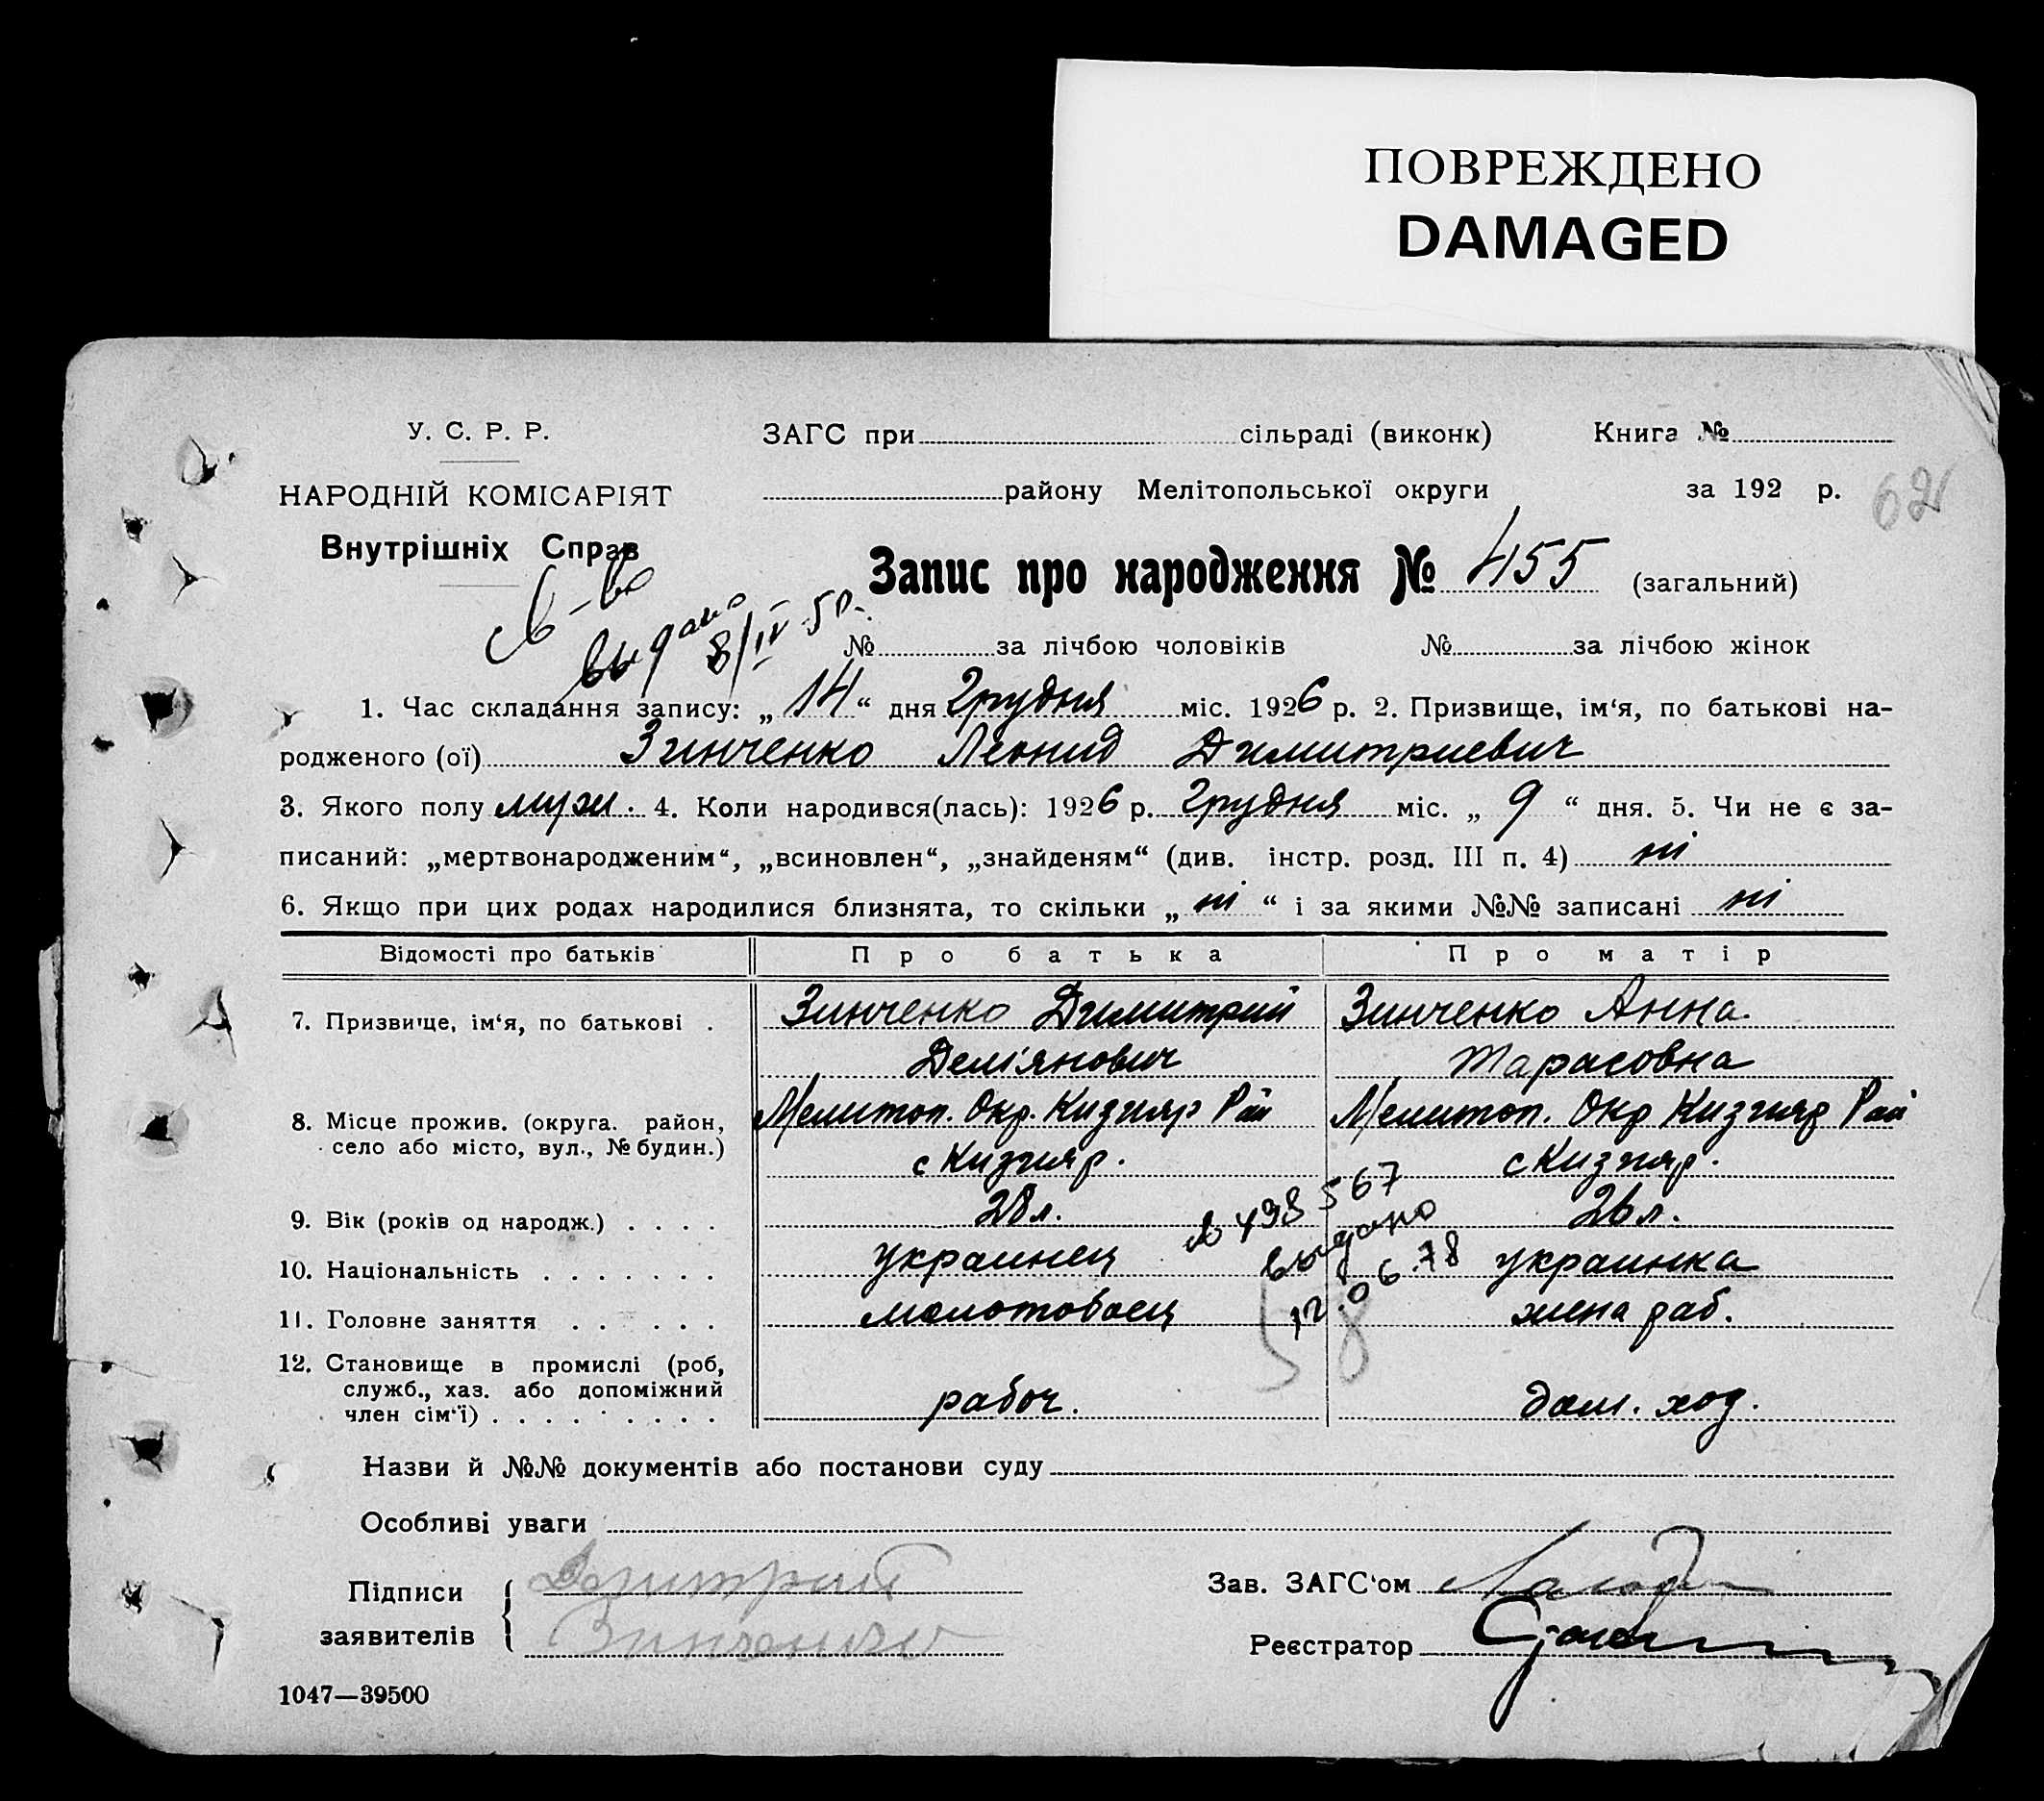 ПОВРЕЖДЕНО
DAMAGED
У. С. Р. Р.
ЗАГС при сільраді (виконк) Книга №
НАРОДНІЙ КОМІСАРІЯТ
району Мелітопольської округи за 192 р.
62
Внутрішніх Справ
Запис про народження № 455 (загальний)
св-во
выдано
8/IV-50.
№ за лічбою чоловіків № за лічбою жінок
1. Час складання запису: „14“ дня Грудня міс. 1926 р. 2. Призвище, ім‘я, по батькові на-
родженого (ої) Зинченко Леонид Димитриевич
3. Якого полу муж. 4. Коли народився(лась): 1926 р. Грудня міс. „ 9 “ дня. 5. Чи не є за-
писаний: „мертвонародженим“, „всиновлен“, „знайденям“ (див. інстр. розд. III п. 4) ні
6. Якщо при цих родах народилися близнята, то скільки „ ні “ і за якими №№ записані ні
Відомості про батьків Про батька Про матір
7. Призвище, ім‘я, по батькові . Зинченко Димитрий Зинченко Анна.
Дем'янович Тарасовна
8. Місце прожив. (округа. район, Мелитоп. Окр. Кизияр Рай Мелитоп. Окр Кизияр Рай
село або місто, вул., № будин.) с Кизияр. с Кизияр.
9. Вік (років од народж.) . . . . 28 л. 26 л.
498567
выдано
12.06.78
10. Національність . . . . . . . украинец украинка
11. Головне заняття . . . . . молотобоец жена раб.
58
12. Становище в промислі (роб,
служб., хаз. або допоміжний
член сім‘ї) . . . . . . . . . рабоч. дом. хоз.
Назви й №№ документів або постанови суду
Особливі уваги
Підписи Димитрий Зав. ЗАГС‘ом
заявителів Зинченко Реєстратор
1047—39500